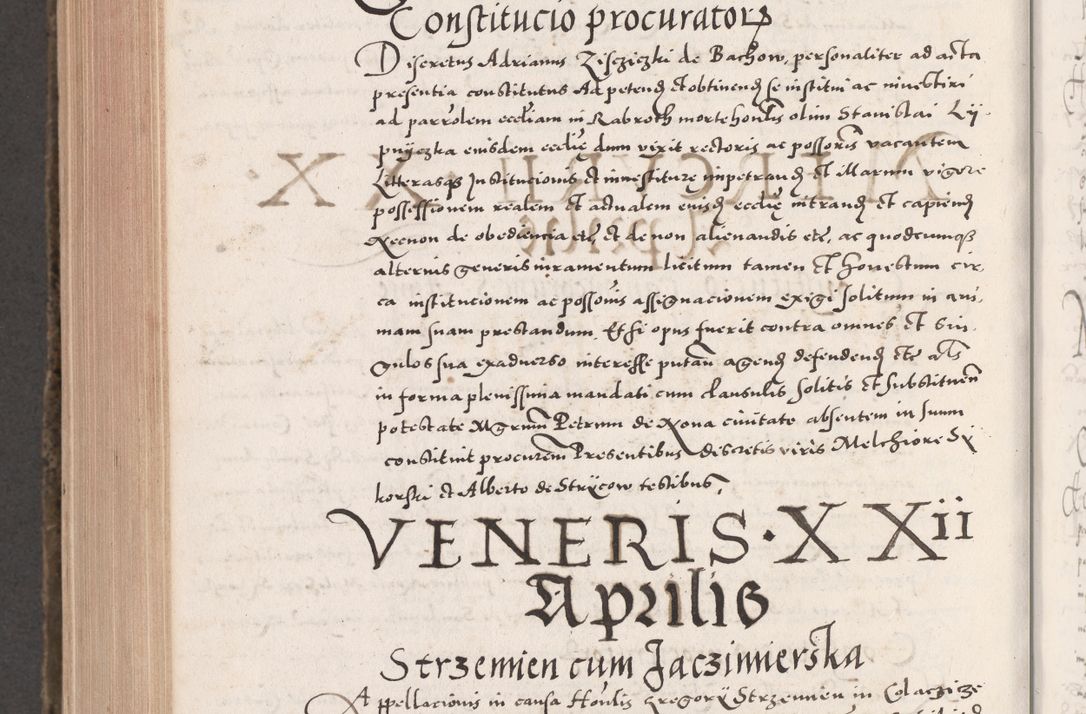 Constitucio procuratorꝝ
Discretus Adrianus Ziscziczki de Bachow, personaliter ad acta
presentia constitutus Ad petenđ et obtinenđ se institui ac investiri
ad parrolem eccliam in Rabroth morte honblis olim Stanislai Lÿ-
pnÿczka eiusdem ecclię dum vixit rectoris ac possoris vacantem
Litterasqз Institucionis et investiture impetranđ et illarum vigore
possessionem realem et actualem eiusđ ecclię intranđ et capienđ
Necnon de obediencia etc, et de non alienandis etc, ac quodcumqз
alterius generis iuramentum licitum tamen et honestum cir-
ca institucionem ac possonis assignacionem exigi solitum in ani-
mam suam prestandum, Et si opus fuerit contra omnes et sin-
gulos sua exadverso interesse putan agenđ defendenđ etc als
in forma plenissima mandati cum clausulis solitis et substituen
potestate Mgrum Petrum de Xona civitate absentem in suum
constituit procurem Presentibus discretis viris Melchiore Si
korski et Alberto de Strÿcow testibus,
VENERIS · X Xii
Aprilis
Strzemien cum Jaczimierska
Appellacionis in causa Honlis Gregorÿ Strzemien in Colaczicze